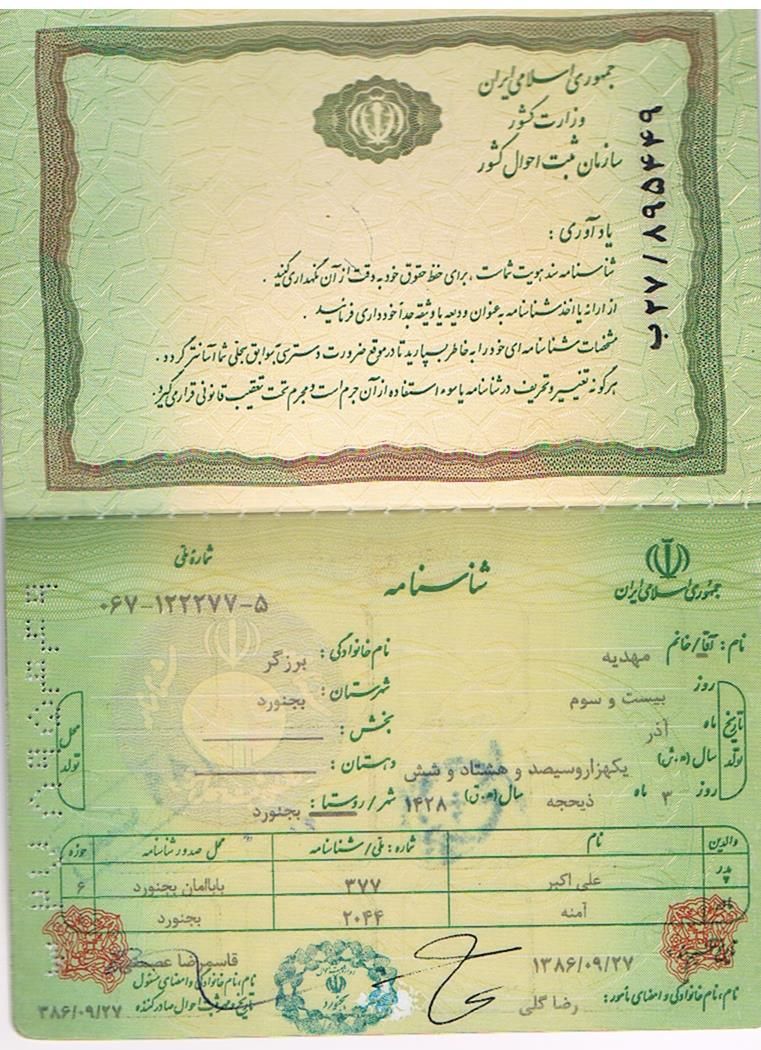 جمهوری اسلامی ایران
وزارت کشور
سازمان ثبت احوال کشور
ب۲۷/۸۹۵۴۴۹
یادآوری :
شناسنامه سند هویت شماست ، برای حفظ حقوق خود به دقت از آن نگهداری کنید .
از ارائه یا اخذ شناسنامه به عنوان ودیعه یا وثیقه جداً خودداری فرمائید .
مشخصات شناسنامه ای خود را به خاطر بسپارید تا در موقع ضرورت دسترسی بسوابق سجلی شما آسانتر گردد .
هرگونه تغییر و تحریف در شناسنامه یا سوء استفاده از آن جرم است و مجرم تحت تعقیب قانونی قرار می گیرد .
جمهوری اسلامی ایران
شناسنامه
شماره ملی
۰۶۷-۱۲۲۲۷۷-۵
نام : آقا/خانم مهدیه
نام خانوادگی : برزگر
تاریخ تولد
روز بیست و سوم
ماه آذر
سال (ه.ش) یکهزاروسیصد و هشتاد و شش
روز ۳ ماه ذیحجه سال (ه.ق) ۱۴۲۸
محل تولد
شهرستان : بجنورد
بخش :
دهستان :
شهر/روستا : بجنورد
والدین نام شماره : ملی/شناسنامه محل صدور شناسنامه حوزه
پدر علی اکبر ۳۷۷ باباامان بجنورد ۶
آمنه ۲۰۴۴ بجنورد
۱۳۸۶/۰۹/۲۷
نام، نام خانوادگی و امضای مأمور : رضا گلی
قاسمرضا
نام، نام خانوادگی و امضای مسئول
ثبت احوال صادرکننده
۳۸۶/۰۹/۲۷
بجنورد